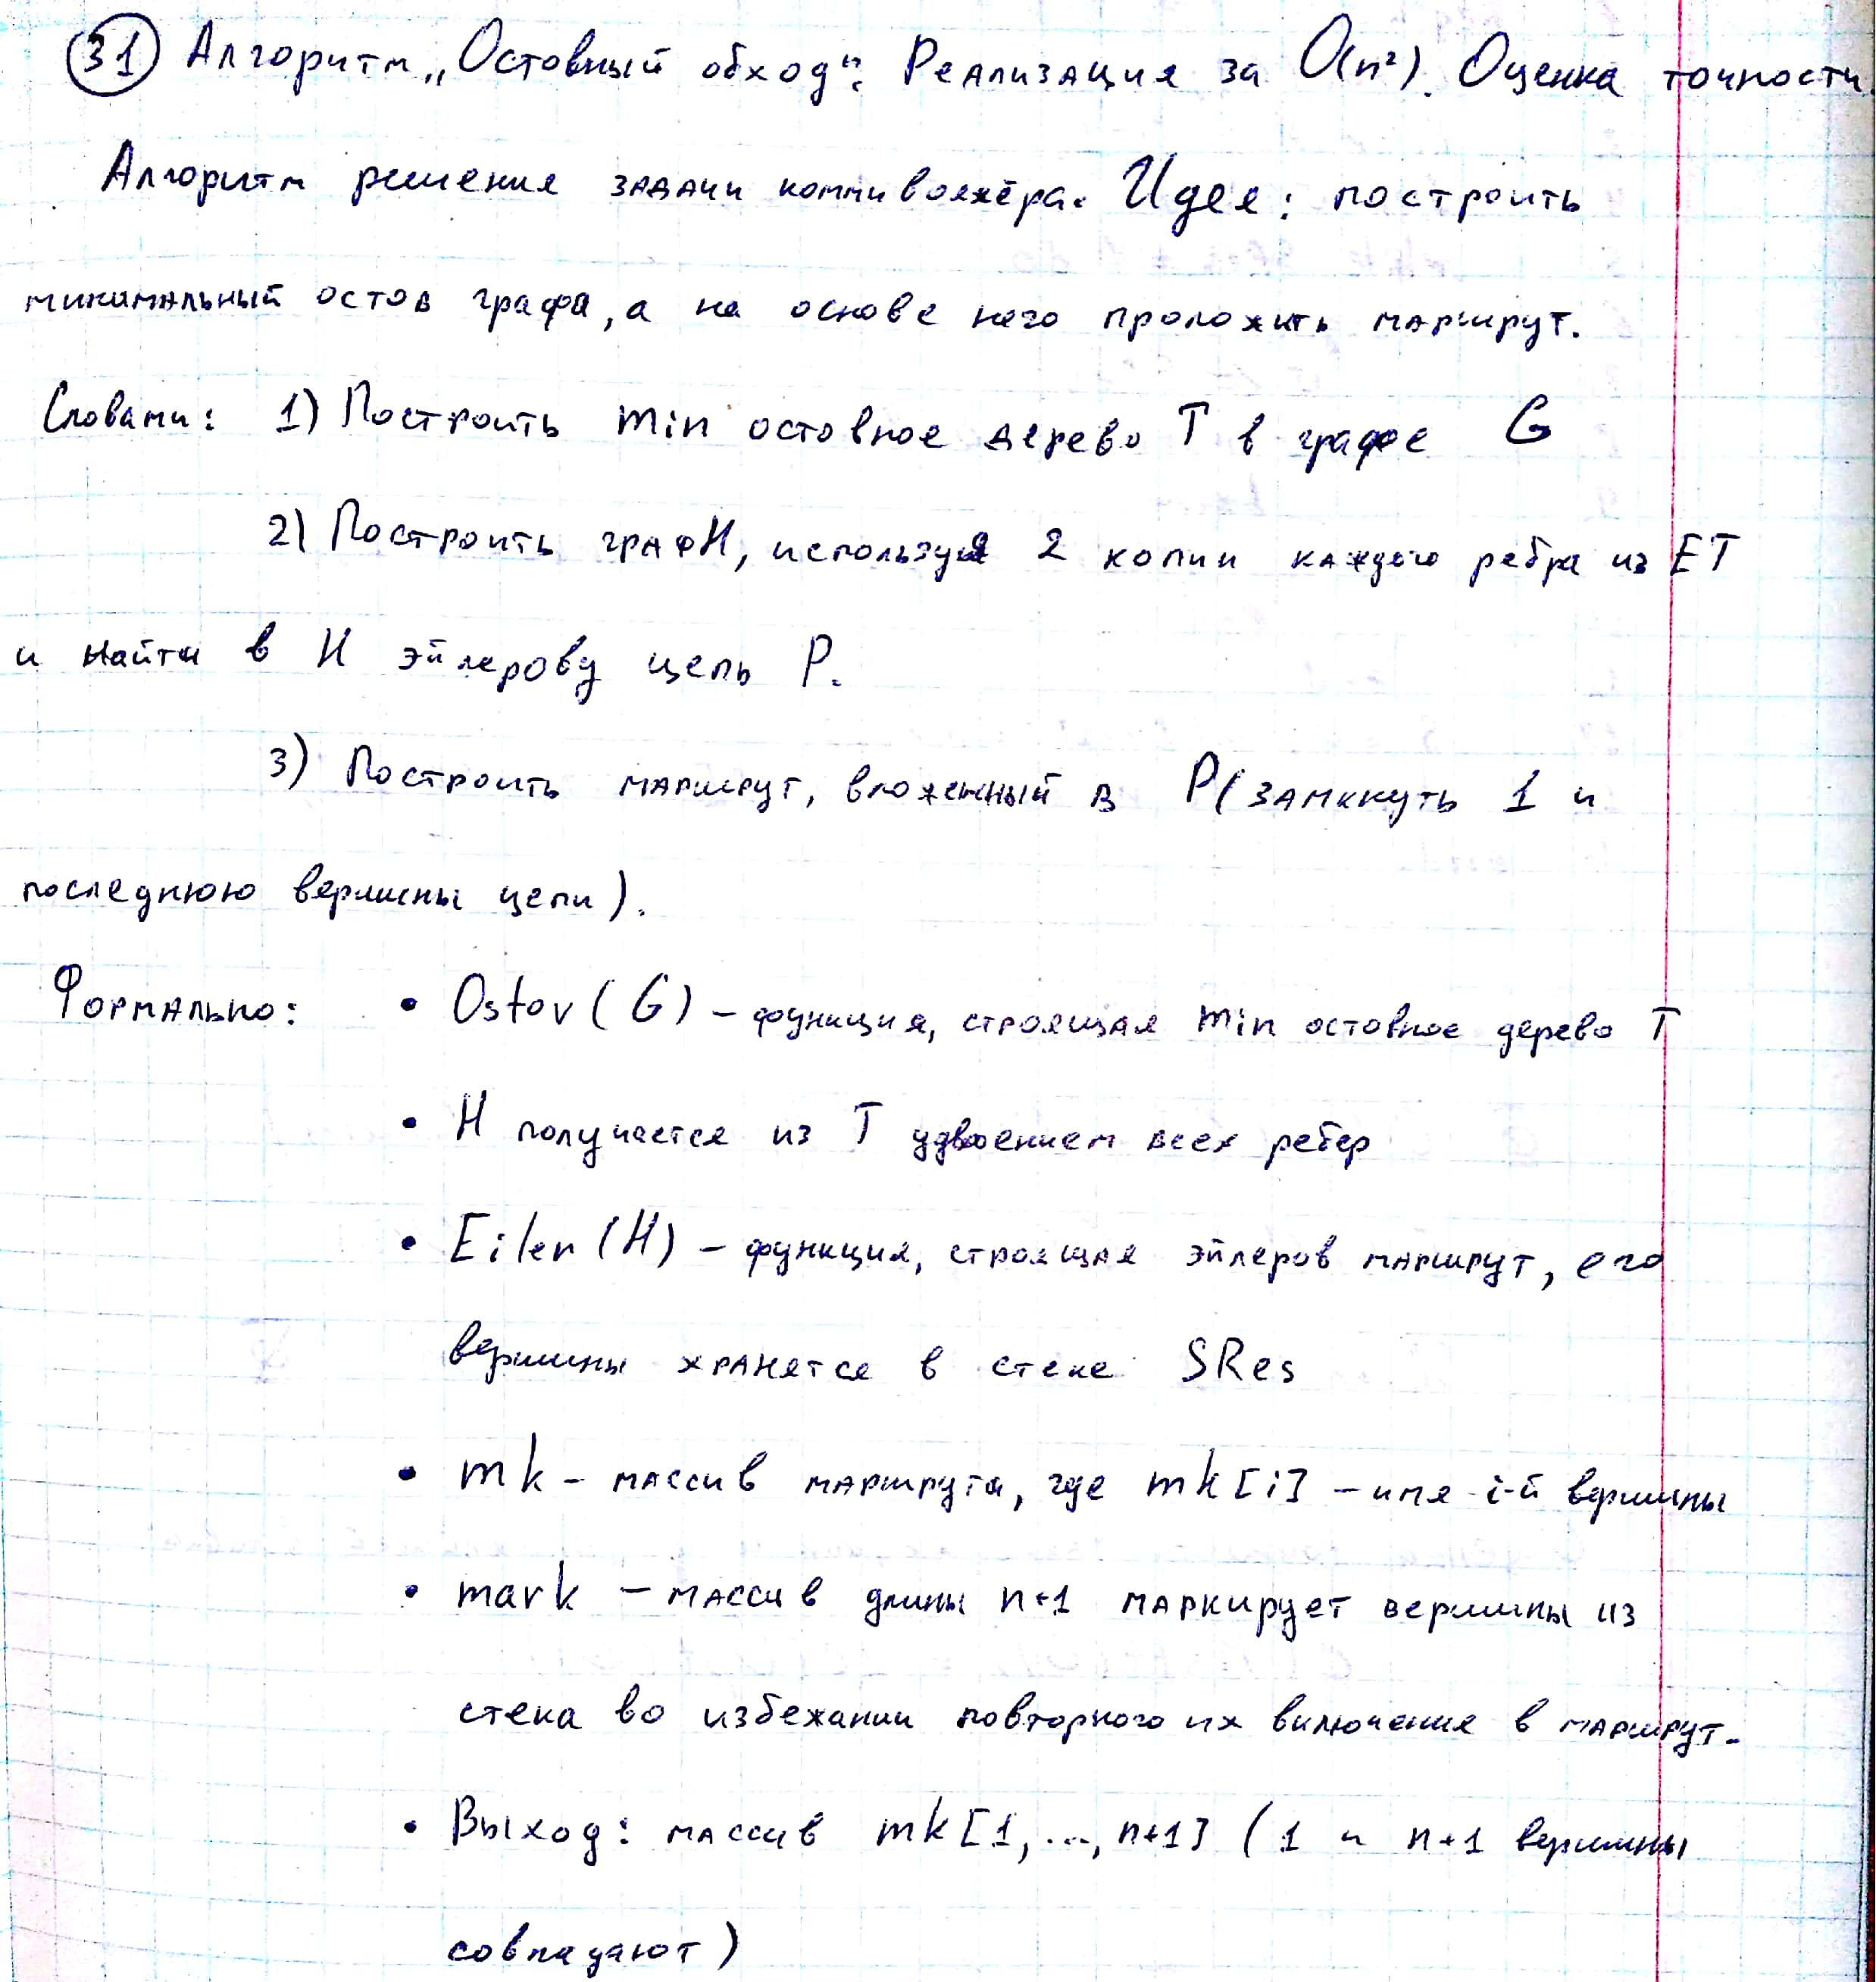 31 Алгоритм „Остовный обход". Реализация за O(n²). Оценка точности.
Алгоритм решения задачи коммивояжёра. Идея: построить
минимальный остов графа, а на основе него проложить маршрут.
Словами: 1) Построить min остовное дерево T в графе G
2) Построить граф H, используя 2 копии каждого ребра из ET
и найти в H эйлерову цепь P.
3) Построить маршрут, вложенный в P (замкнуть 1 и
последнюю вершины цепи).
Формально: • Ostov (G) – функция, строящая min остовное дерево T
• H получается из T удвоением всех ребер
• Eiler (H) – функция, строящая эйлеров маршрут, его
вершины хранятся в стеке SRes
• mk – массив маршрута, где mk[i] – имя i-й вершины
• mark – массив длины n+1 маркирует вершины из
стека во избежании повторного их включения в маршрут.
• Выход: массив mk[1,...,n+1] (1 и n+1 вершины
совпадают)